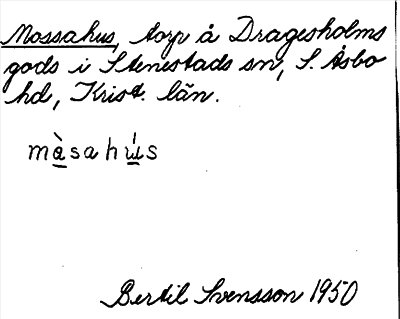 Mossahus, torp å Dragesholms
gods i Stenestads sn, S. Åsbo
hd, Krist. län.
må̀sahú̱s
Bertil Svensson 1950